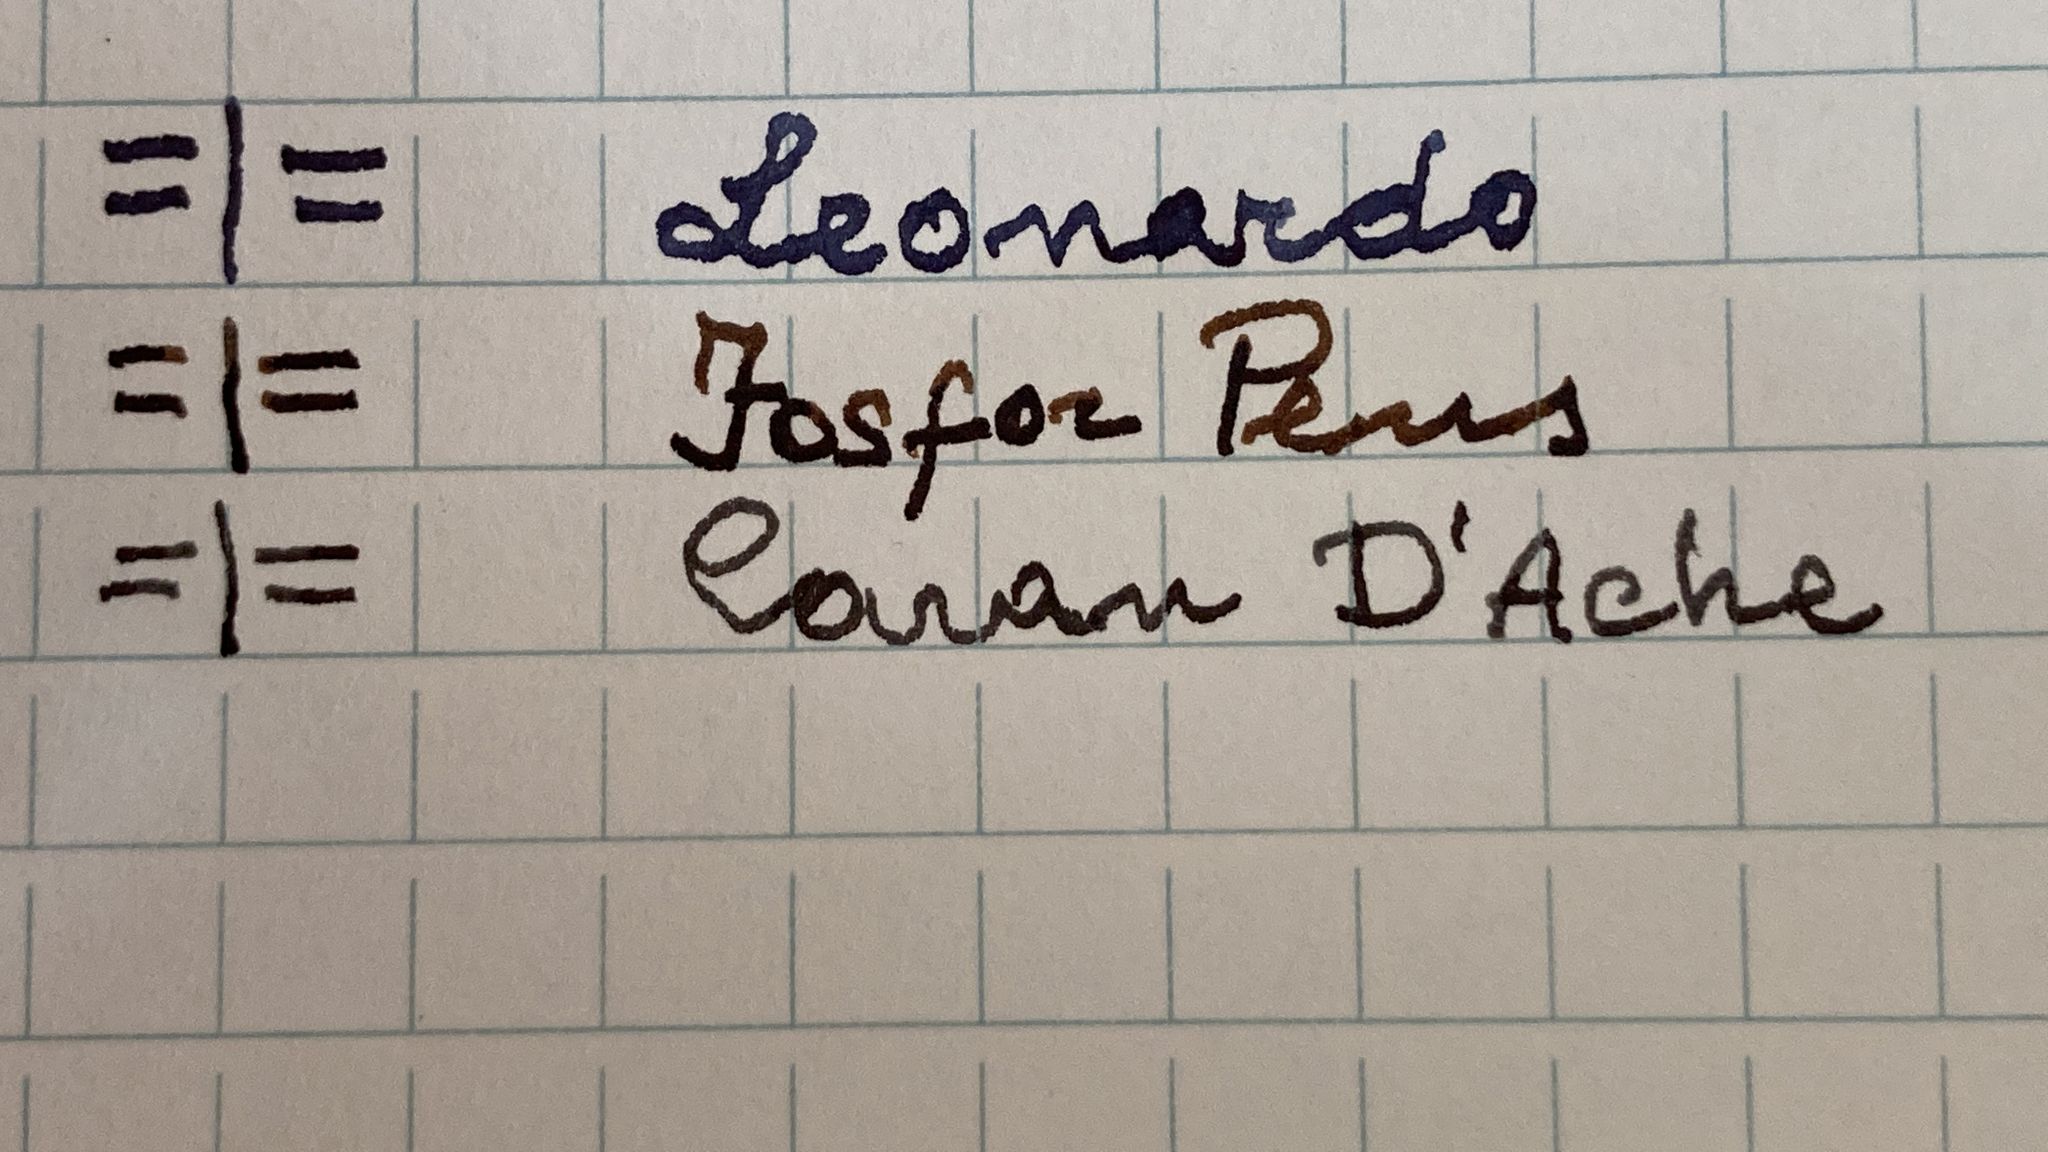 =|= Leonardo
=|= Fosfor Pens
=|= Caran D'Ache